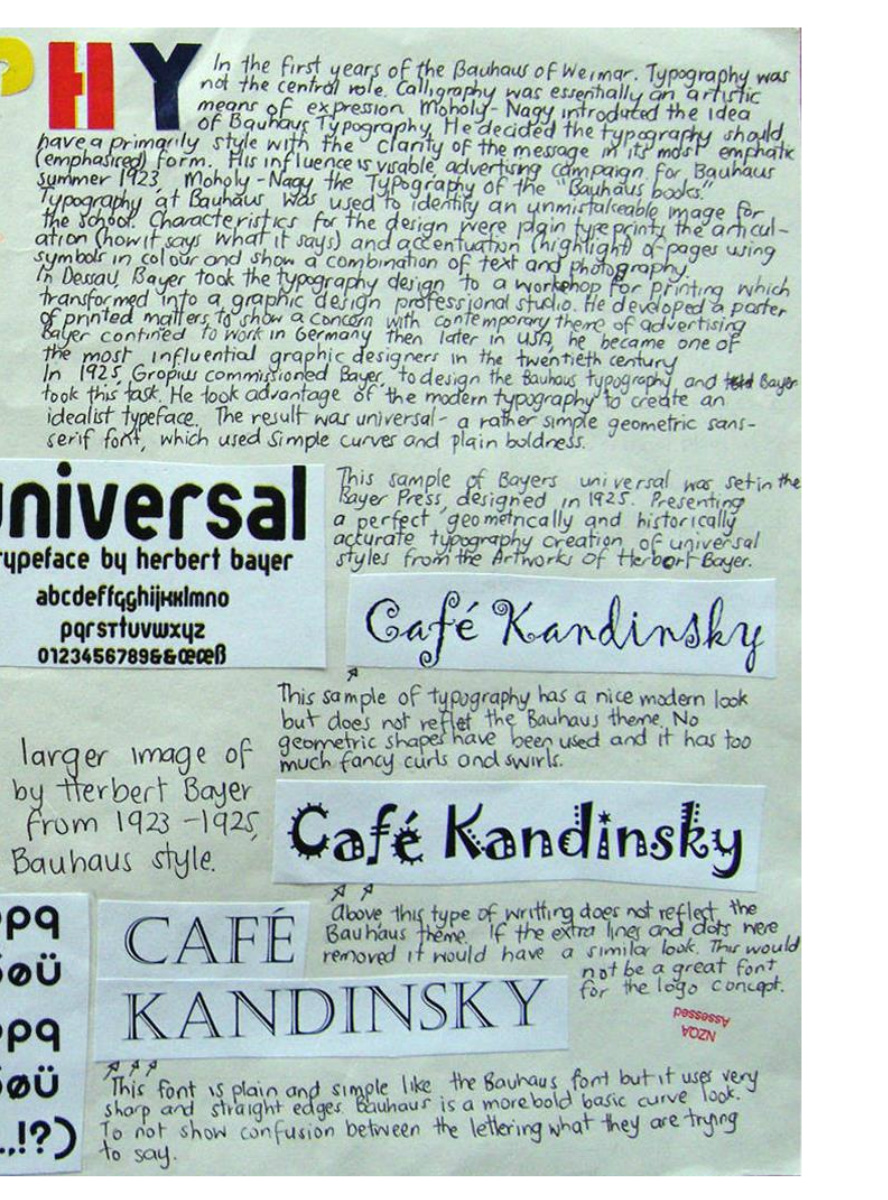 PHY
In the first years of the Bauhaus of Weimar. Typography was
not the central role. Calligraphy was essentially an artistic
means of expression Moholy-Nagy introduced the idea
of Bauhaus Typography, He decided the typography should
have a primarily style with the clarity of the message in its most emphatic
(emphasised) form. His influence is visable, advertisng campaign for Bauhaus
summer 1923, Moholy-Nagy the Typography of the "Bauhaus books."
Typography at Bauhaus, was used to identify an unmistakeable image for
the school. Characteristics for the design were plain type prints, the articul-
ation (how it says what it says) and accentuation (highlight) of pages using
symbols in colour and show a combination of text and photography.
In Dessau, Bayer took the typography design to a workshop for printing which
transformed into a graphic design professional studio. He developed a poster
of printed matters, to show a concern with contemporary theme of advertising
Bayer contined to work in Germany then later in USA, he became one of
the most influential graphic designers in the twentieth century
In 1925, Gropius commissioned Bayer, to design the Bauhaus typography, and Bayer
took this task. He took advantage of the modern typography to create an
idealist typeface. The result was universal- a rather simple geometric sans-
serif font, which used simple curves and plain boldness.
universal
typeface by herbert bayer
abcdeffgghijkklmno
pqrsttuvwxyz
0123456789&&œœß
This sample of Bayers universal was set in the
Bayer Press, designed in 1925. Presenting
a perfect geometrically and historically
accurate typography creation of universal
styles from the Artworks Of Herbert Bayer.
Café Kandinsky
This sample of typography has a nice modern look
but does not reflet the Bauhaus theme. No
geometric shapes have been used and it has too
much fancy curls and swirls.
larger image of
by Herbert Bayer
from 1923 - 1925,
Bauhaus style.
Café Kandinsky
Above this type of writting does not reflect the
Bauhaus theme. If the extra lines and dots were
removed it would have a similar look. This would
not be a great font
for the logo concept.
NZQA
Assessed
opq
öøü
opq
öøü
.,!?)
CAFÉ
KANDINSKY
This font is plain and simple like the Bauhaus font but it uses very
sharp and straight edges. Bauhaus is a more bold basic curve look.
To not show confusion between the lettering what they are trying
to say.